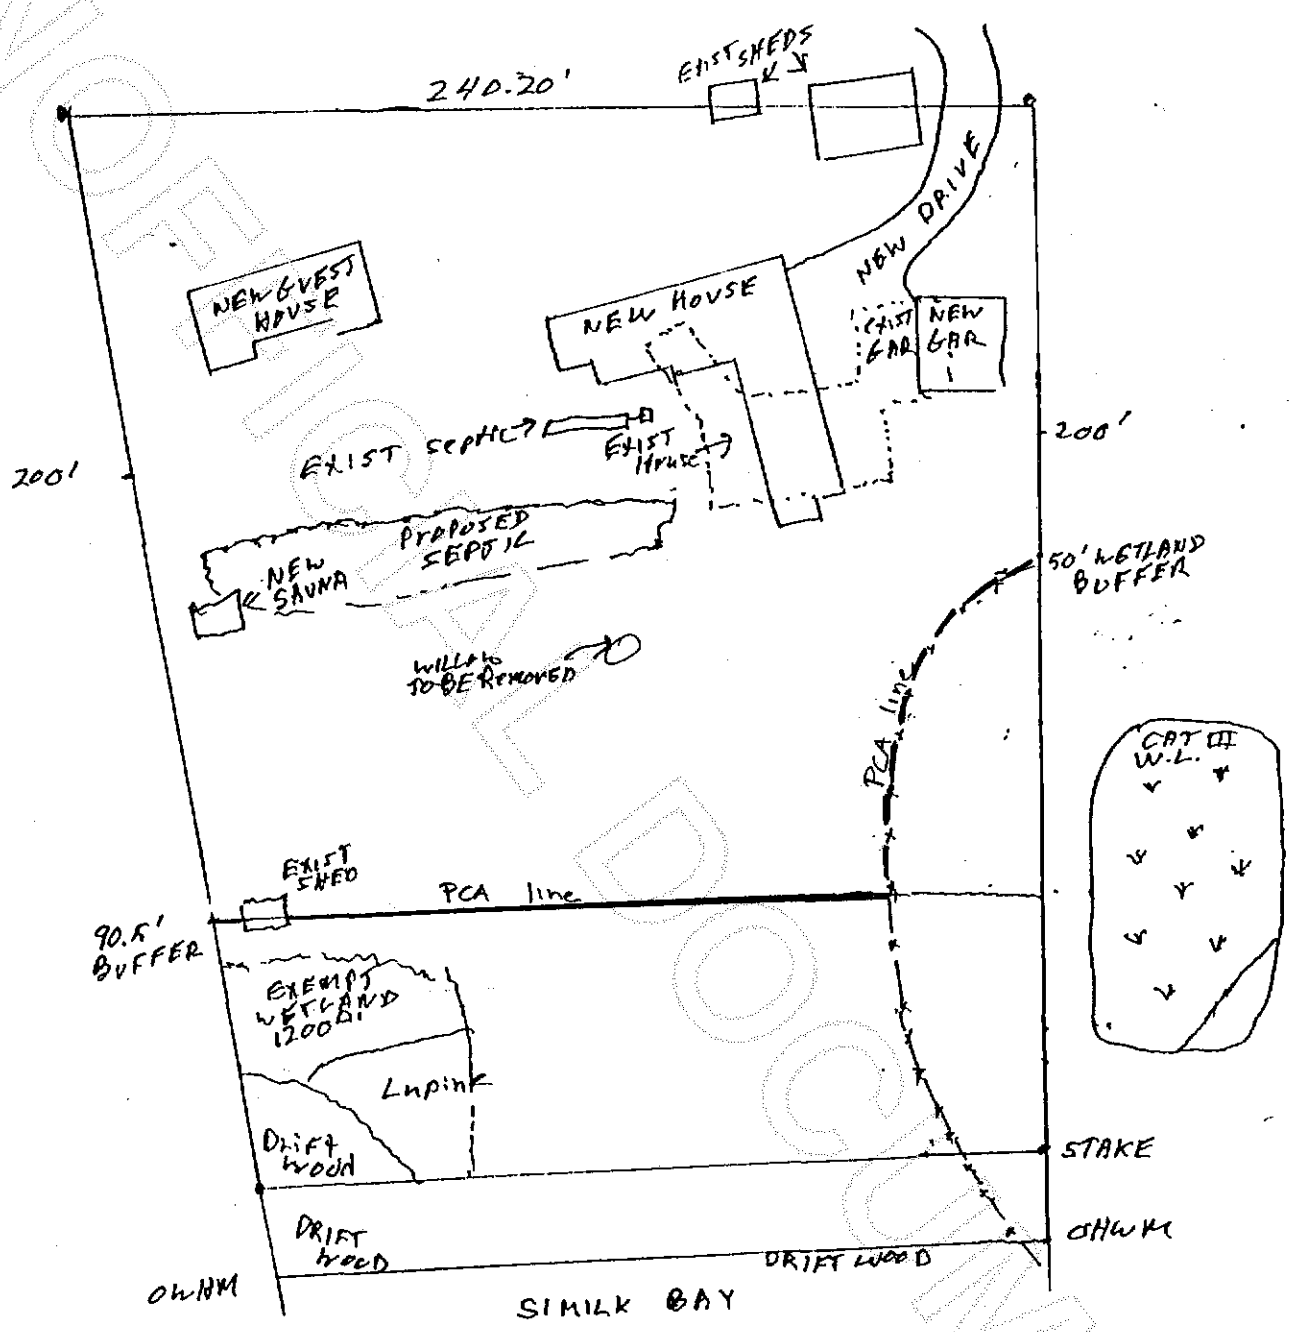 240.20'
EXIST SHEDS
NEW DRIVE
NEW GUEST
HOUSE
NEW HOUSE
EXIST
GAR
NEW
GAR
EXIST SEPTIC
EXIST
House
200'
200'
PROPOSED
SEPTIC
NEW
SAUNA
50' WETLAND
BUFFER
WILLOW
TO BE REMOVED
PCA line
CAT III
W.L.
EXIST
SHED
PCA line
90.5'
BUFFER
EXEMPT
WETLAND
1200
Lupink
Drift
Wood
STAKE
DRIFT
WOOD
DRIFT WOOD
OHWM
OWHM
SIMILK BAY
UNOFFICIAL DOCUM